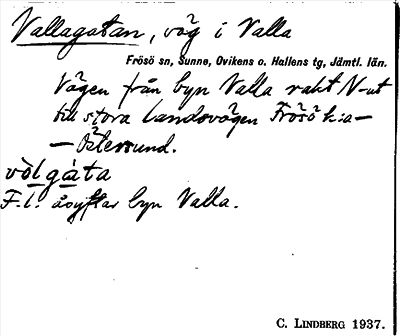 Vallagatan, väg i Valla
Frösö sn, Sunne, Ovikens o. Hallens tg, Jämtl. län.
Vägen från byn Valla rakt N-ut
till stora landsvägen Frösö k:a—
—Östersund.
vòlgàta
F.l. åsyftar byn Valla.
C. LINDBERG 1937.